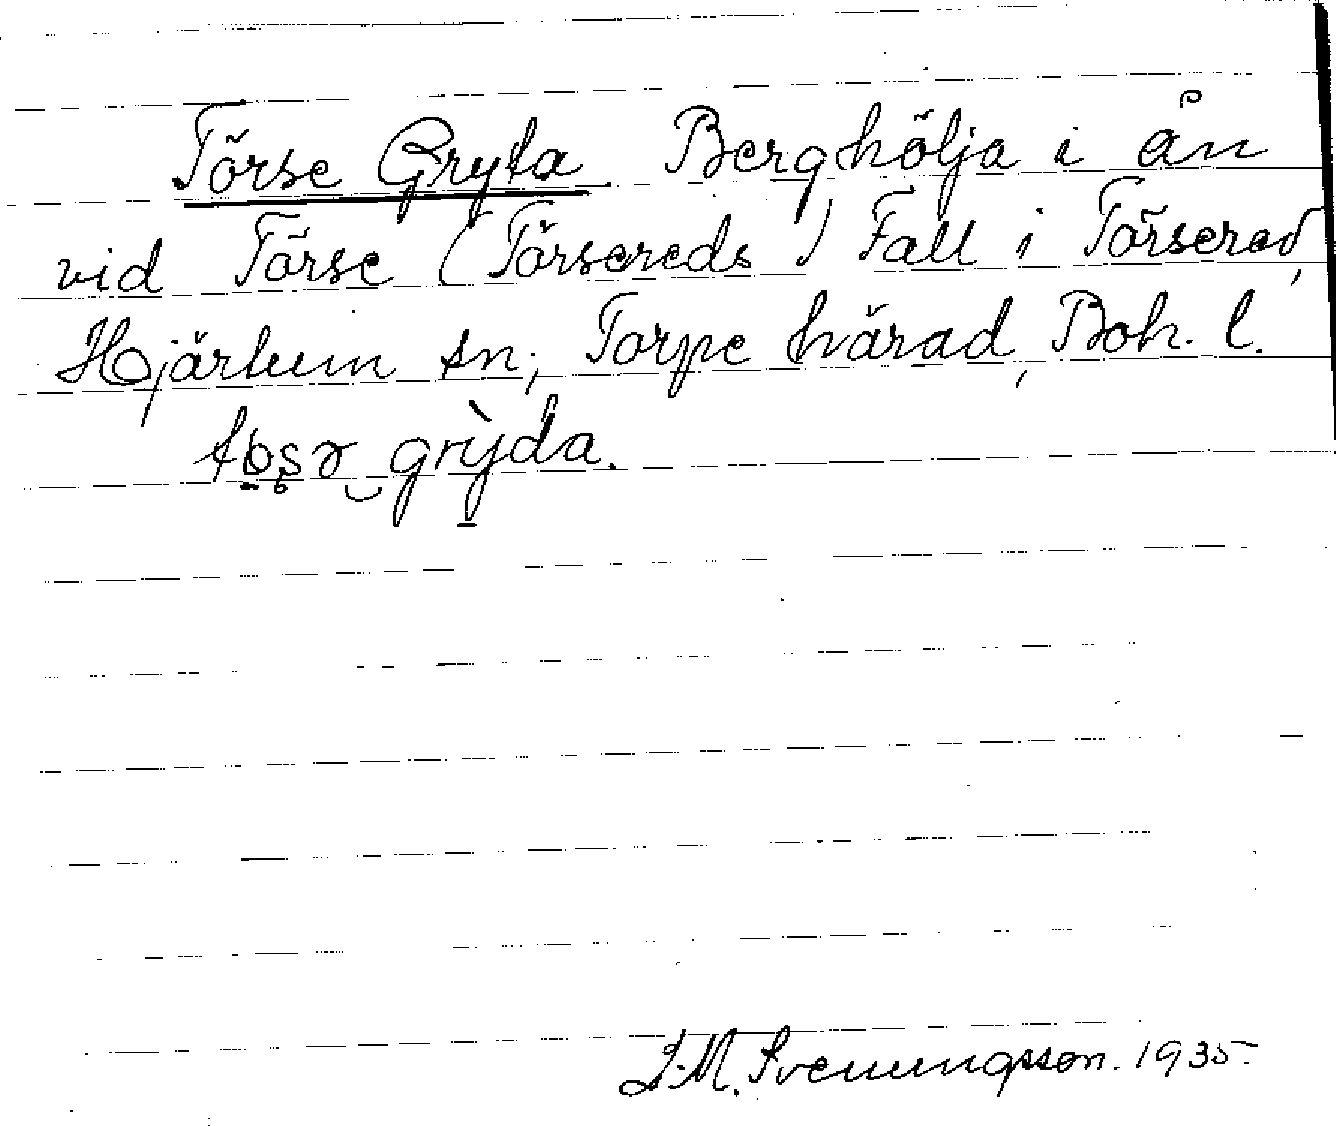 Törse Gryta Berghölja i ån
vid Törse (Törsereds) Fall i Törsered,
Hjärtum sn, Torpe härad, Boh. l.
grỳda.
J. M. Svenningsson. 1935.